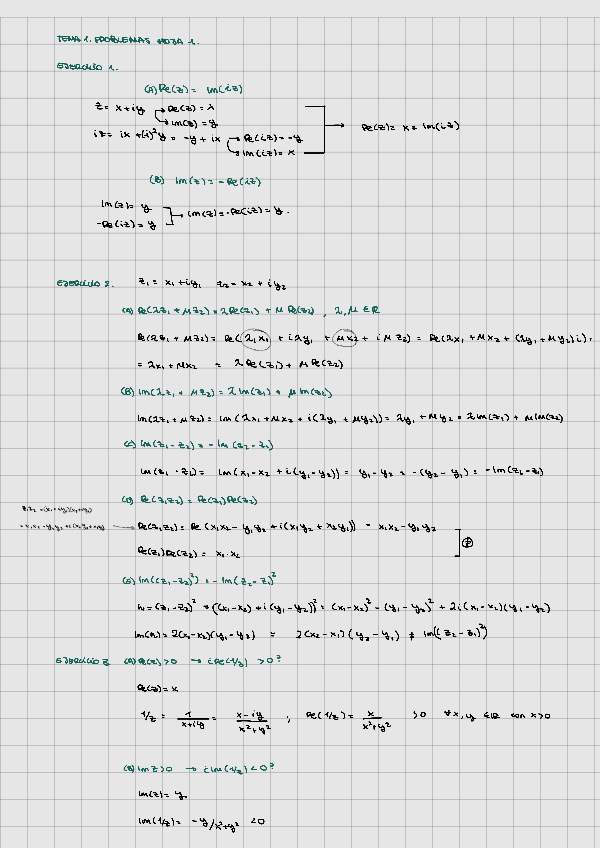 TEMA 1. PROBLEMAS HOJA 1.
EJERCICIO 1.
(A) Re(z) = Im(iz)
z = x+iy → Re(z) = x
→ Im(z) = y
iz = ix + (i)²y = -y + ix → Re(iz) = -y
→ Im(iz) = x
→ Re(z) = x = Im(iz)
(B) Im(z) = -Re(iz)
Im(z) = y
-Re(iz) = y
→ Im(z) = -Re(iz) = y.
EJERCICIO 2. z₁ = x₁+iy₁ z₂ = x₂+iy₂
(A) Re(λz₁ + μz₂) = λRe(z₁) + μRe(z₂) , λ,μ ∈ ℝ
Re(λz₁ + μz₂) = Re(λx₁ + iλy₁ + μx₂ + iμz₂) = Re(λx₁ + μx₂ + (λy₁ + μy₂)i) =
= λx₁ + μx₂ = λRe(z₁) + μRe(z₂)
(B) Im(λz₁ + μz₂) = λIm(z₁) + μIm(z₂)
Im(λz₁ + μz₂) = Im(λx₁ + μx₂ + i(λy₁ + μy₂)) = λy₁ + μy₂ = λIm(z₁) + μIm(z₂)
(C) Im(z₁-z₂) = -Im(z₂-z₁)
Im(z₁-z₂) = Im(x₁-x₂ + i(y₁-y₂)) = y₁-y₂ = -(y₂-y₁) = -Im(z₂-z₁)
(D) Re(z₁z₂) = Re(z₁)Re(z₂)
z₁z₂ = (x₁+iy₁)(x₂+iy₂)
Re(z₁z₂) = Re(x₁x₂ - y₁y₂ + i(x₁y₂ + x₂y₁)) = x₁x₂ - y₁y₂
Re(z₁)Re(z₂) = x₁·x₂
≠
(E) Im((z₁-z₂)²) = -Im(z₂-z₁)²
w = (z₁-z₂)² = ((x₁-x₂) + i(y₁-y₂))² = (x₁-x₂)² - (y₁-y₂)² + 2i(x₁-x₂)(y₁-y₂)
Im(w) = 2(x₁-x₂)(y₁-y₂) = 2(x₂-x₁)(y₂-y₁) ≠ Im((z₂-z₁)²)
EJERCICIO 3. (A) Re(z)>0 → ¿Re(1/z) >0?
Re(z) = x
1/z = 1/(x+iy) = (x-iy)/(x²+y²) ; Re(1/z) = x/(x²+y²) >0 ∀x,y ∈ℝ con x>0
(B) Im z>0 → ¿Im(1/z) <0?
Im(z) = y
Im(1/z) = -y/x²+y² <0